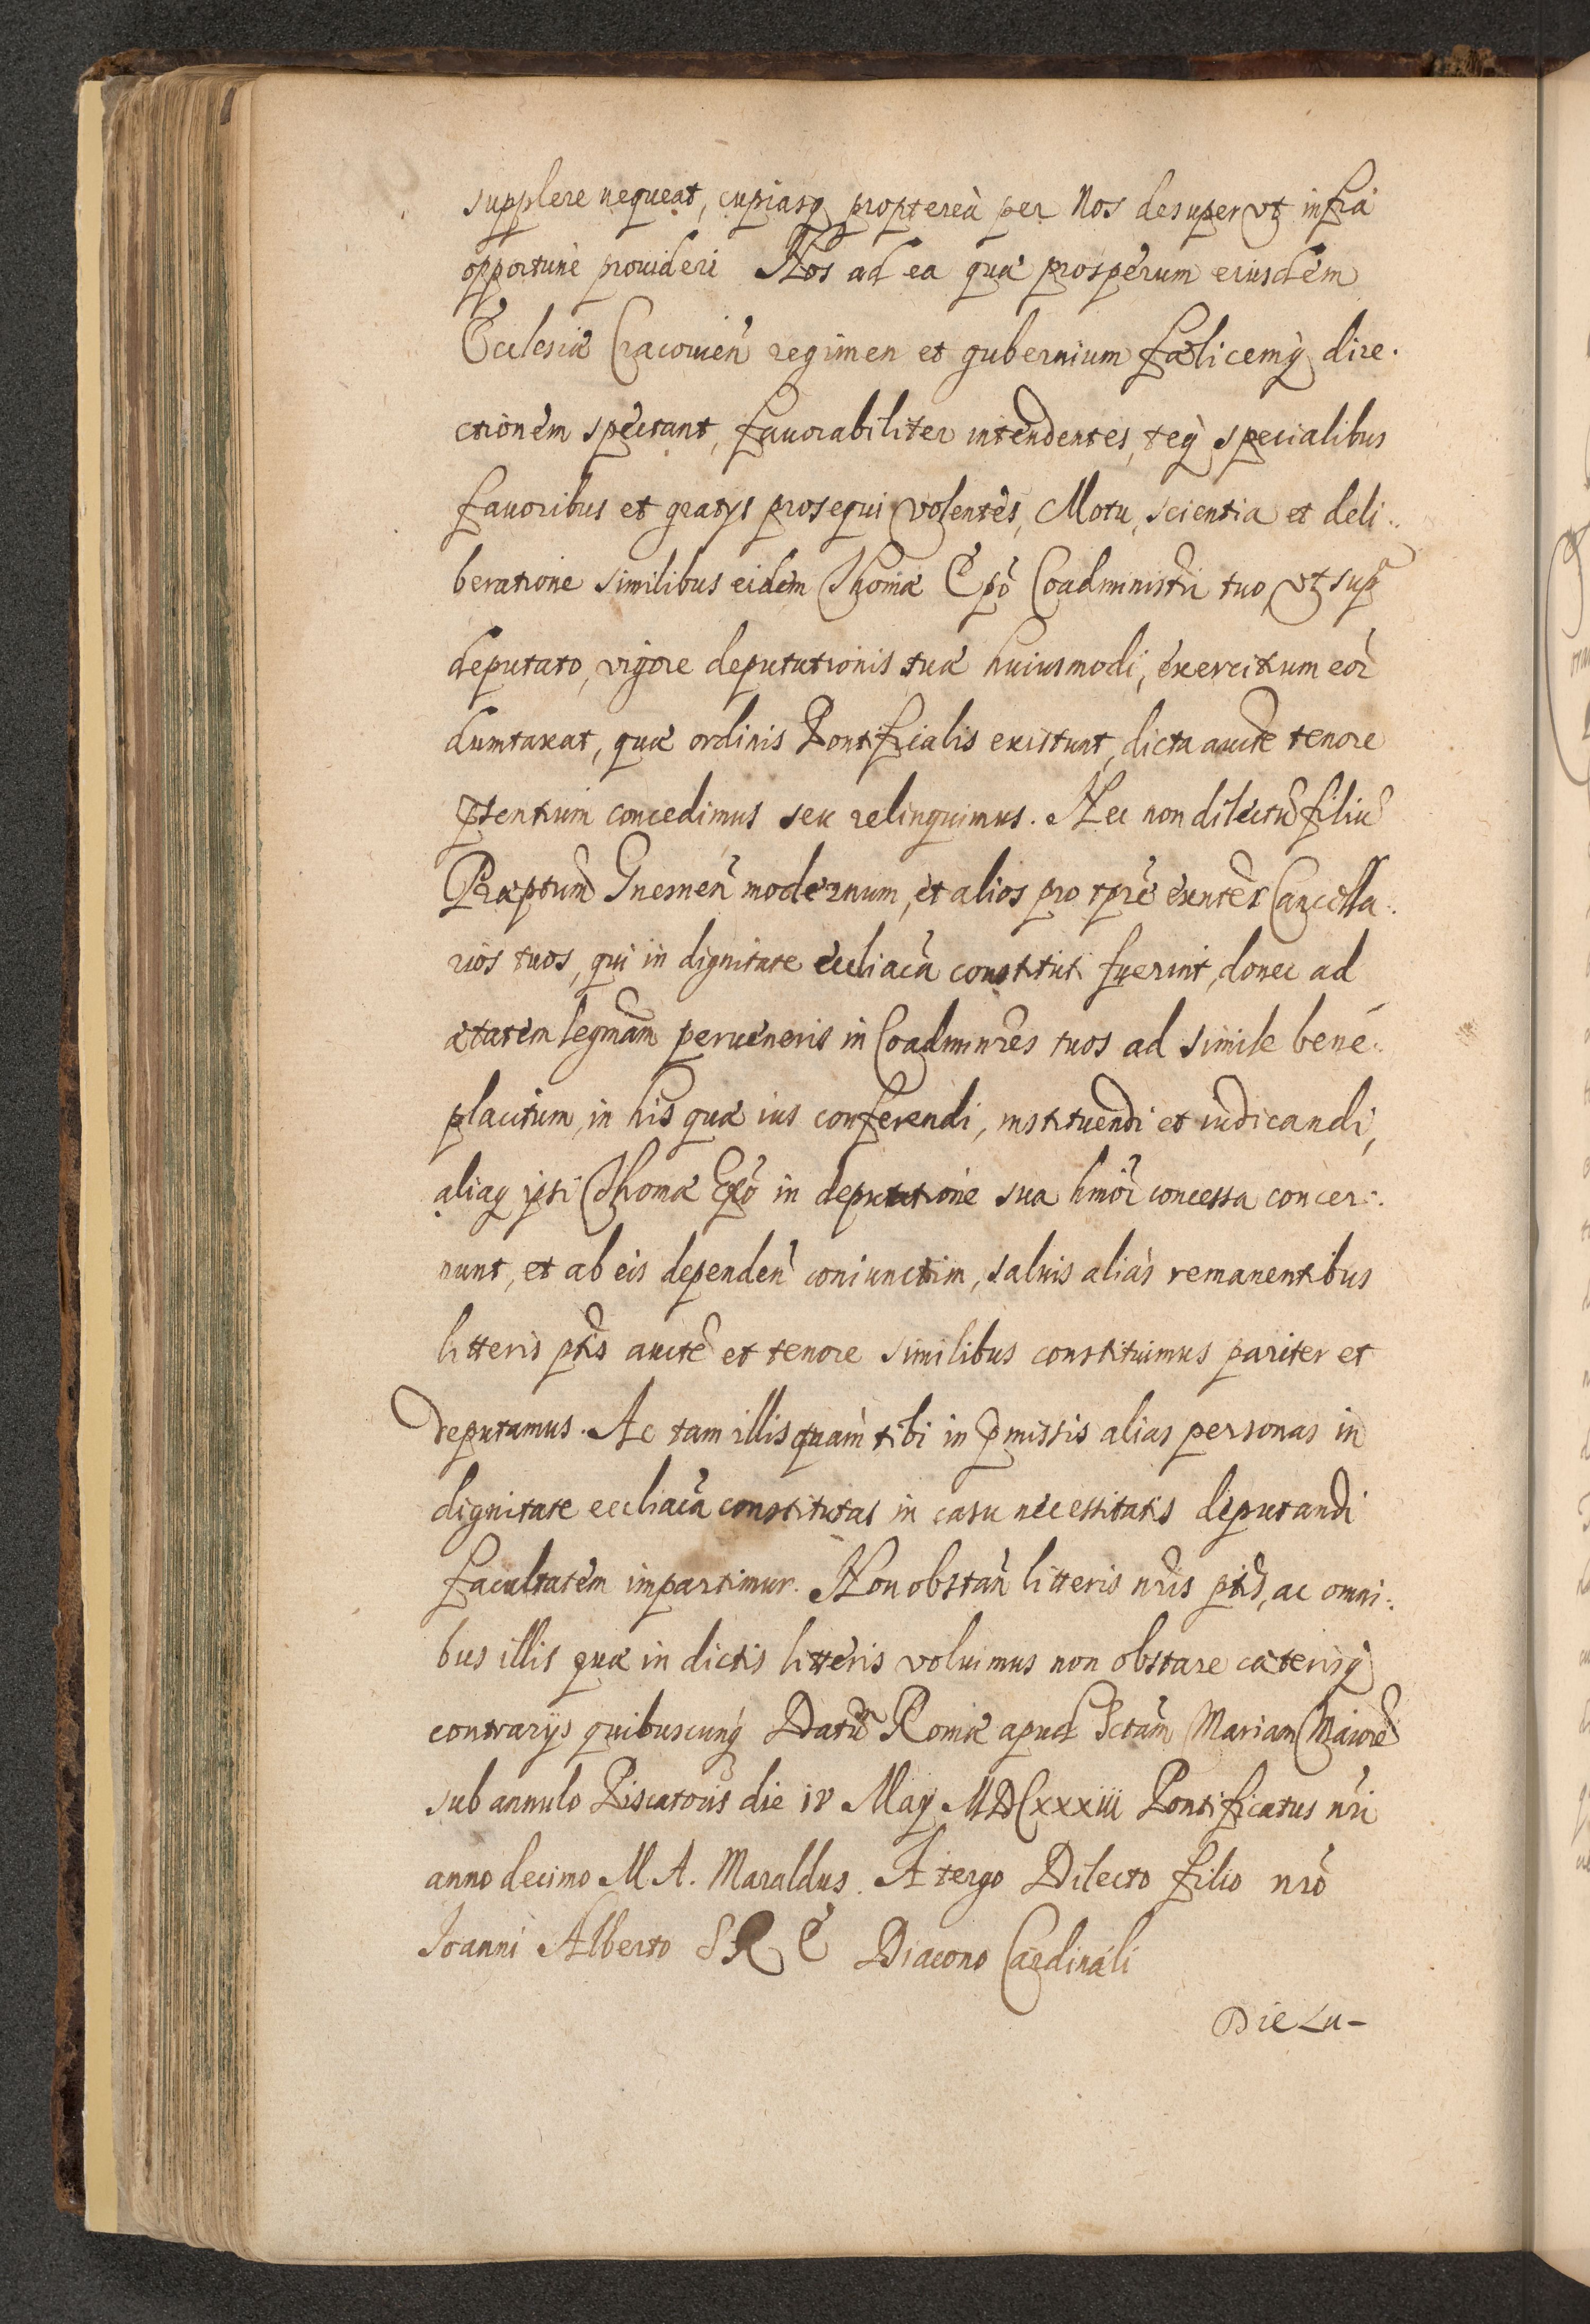 supplere nequeat, cupiasq propterèa per Nos desuper vt infra
opportunè prouideri Nos ad ea quæ prosperum eiusdem
Ecclesiæ Cracouien̄ regimen et gubernium fælicemq́ dire.
ctionem spectant, fauorabiliter intendentes, teq́ specialibus
fauoribus et gratijs prosequi volentes, Motu, scientia et deli..
beratione similibus eidem Thomæ Ep̄o Coadministri tuo, vt sup̄
deputato, vigore deputationis tuæ huiusmodi, exercitium eor̄
dumtaxat, quæ ordinis Pontificialis existunt, dicta aucte tenore
pr̄sentium concedimus seu relinquimus. Nec non dilectū filiū
Præptum Gnesnen̄ modernum, et alios pro tp̄re exn̄tes Cancella..
rios tuos, qui in dignitate eccliacā constituti fuerint, donec ad
ætatem legm̄am perueneris in Coadminrēs tuos ad simile bene..
placitum, in his quæ ius conferendi, instituendi et iudicandi,
aliaq ipsi Thomæ Ep̄o in deputatione sua hmōi concessa concer..
nunt, et ab eis dependen̄ coniunctim, saluis aliàs remanentibus
litteris ptīs aucte et tenore similibus constituimus pariter et
deputamus. Ac tam illis quàm tibi in p̄missis alias personas in
dignitate eccliacā constitutas in casu necessitatis deputandi
facultatem impartimur. Non obstan̄ litteris nr̄is ptīs, ac omni..
bus illis quæ in dictis litteris voluimus non obstare cæterisq́
contrarijs quibuscunq́ Datū Romæ apud Sctām Mariam Maiorē
sub annulo Piscatoris die iv May MDCxxxiii Pontificatus nr̄i
anno decimo M. A. Maraldus. A tergo Dilecto filio nr̄o
Ioanni Alberto S R E Diacono Cardinali
Die Lu-